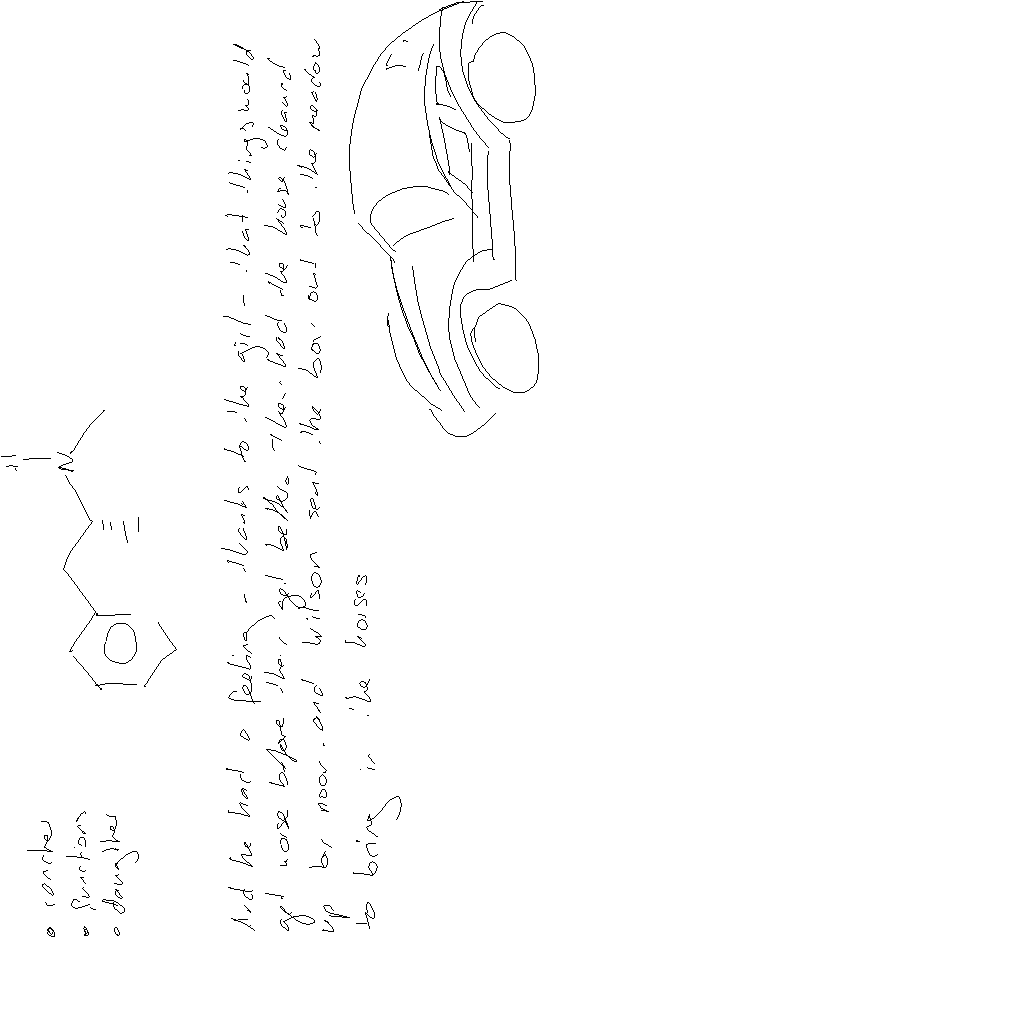 • ranches
• functions
• daughter
N
And he had a feeling - thanks to the girl - that things would
get worse before they got better. They had the house cleaned
up by noon, and Wilson sent the boy out to the meadow
to bring in the horses